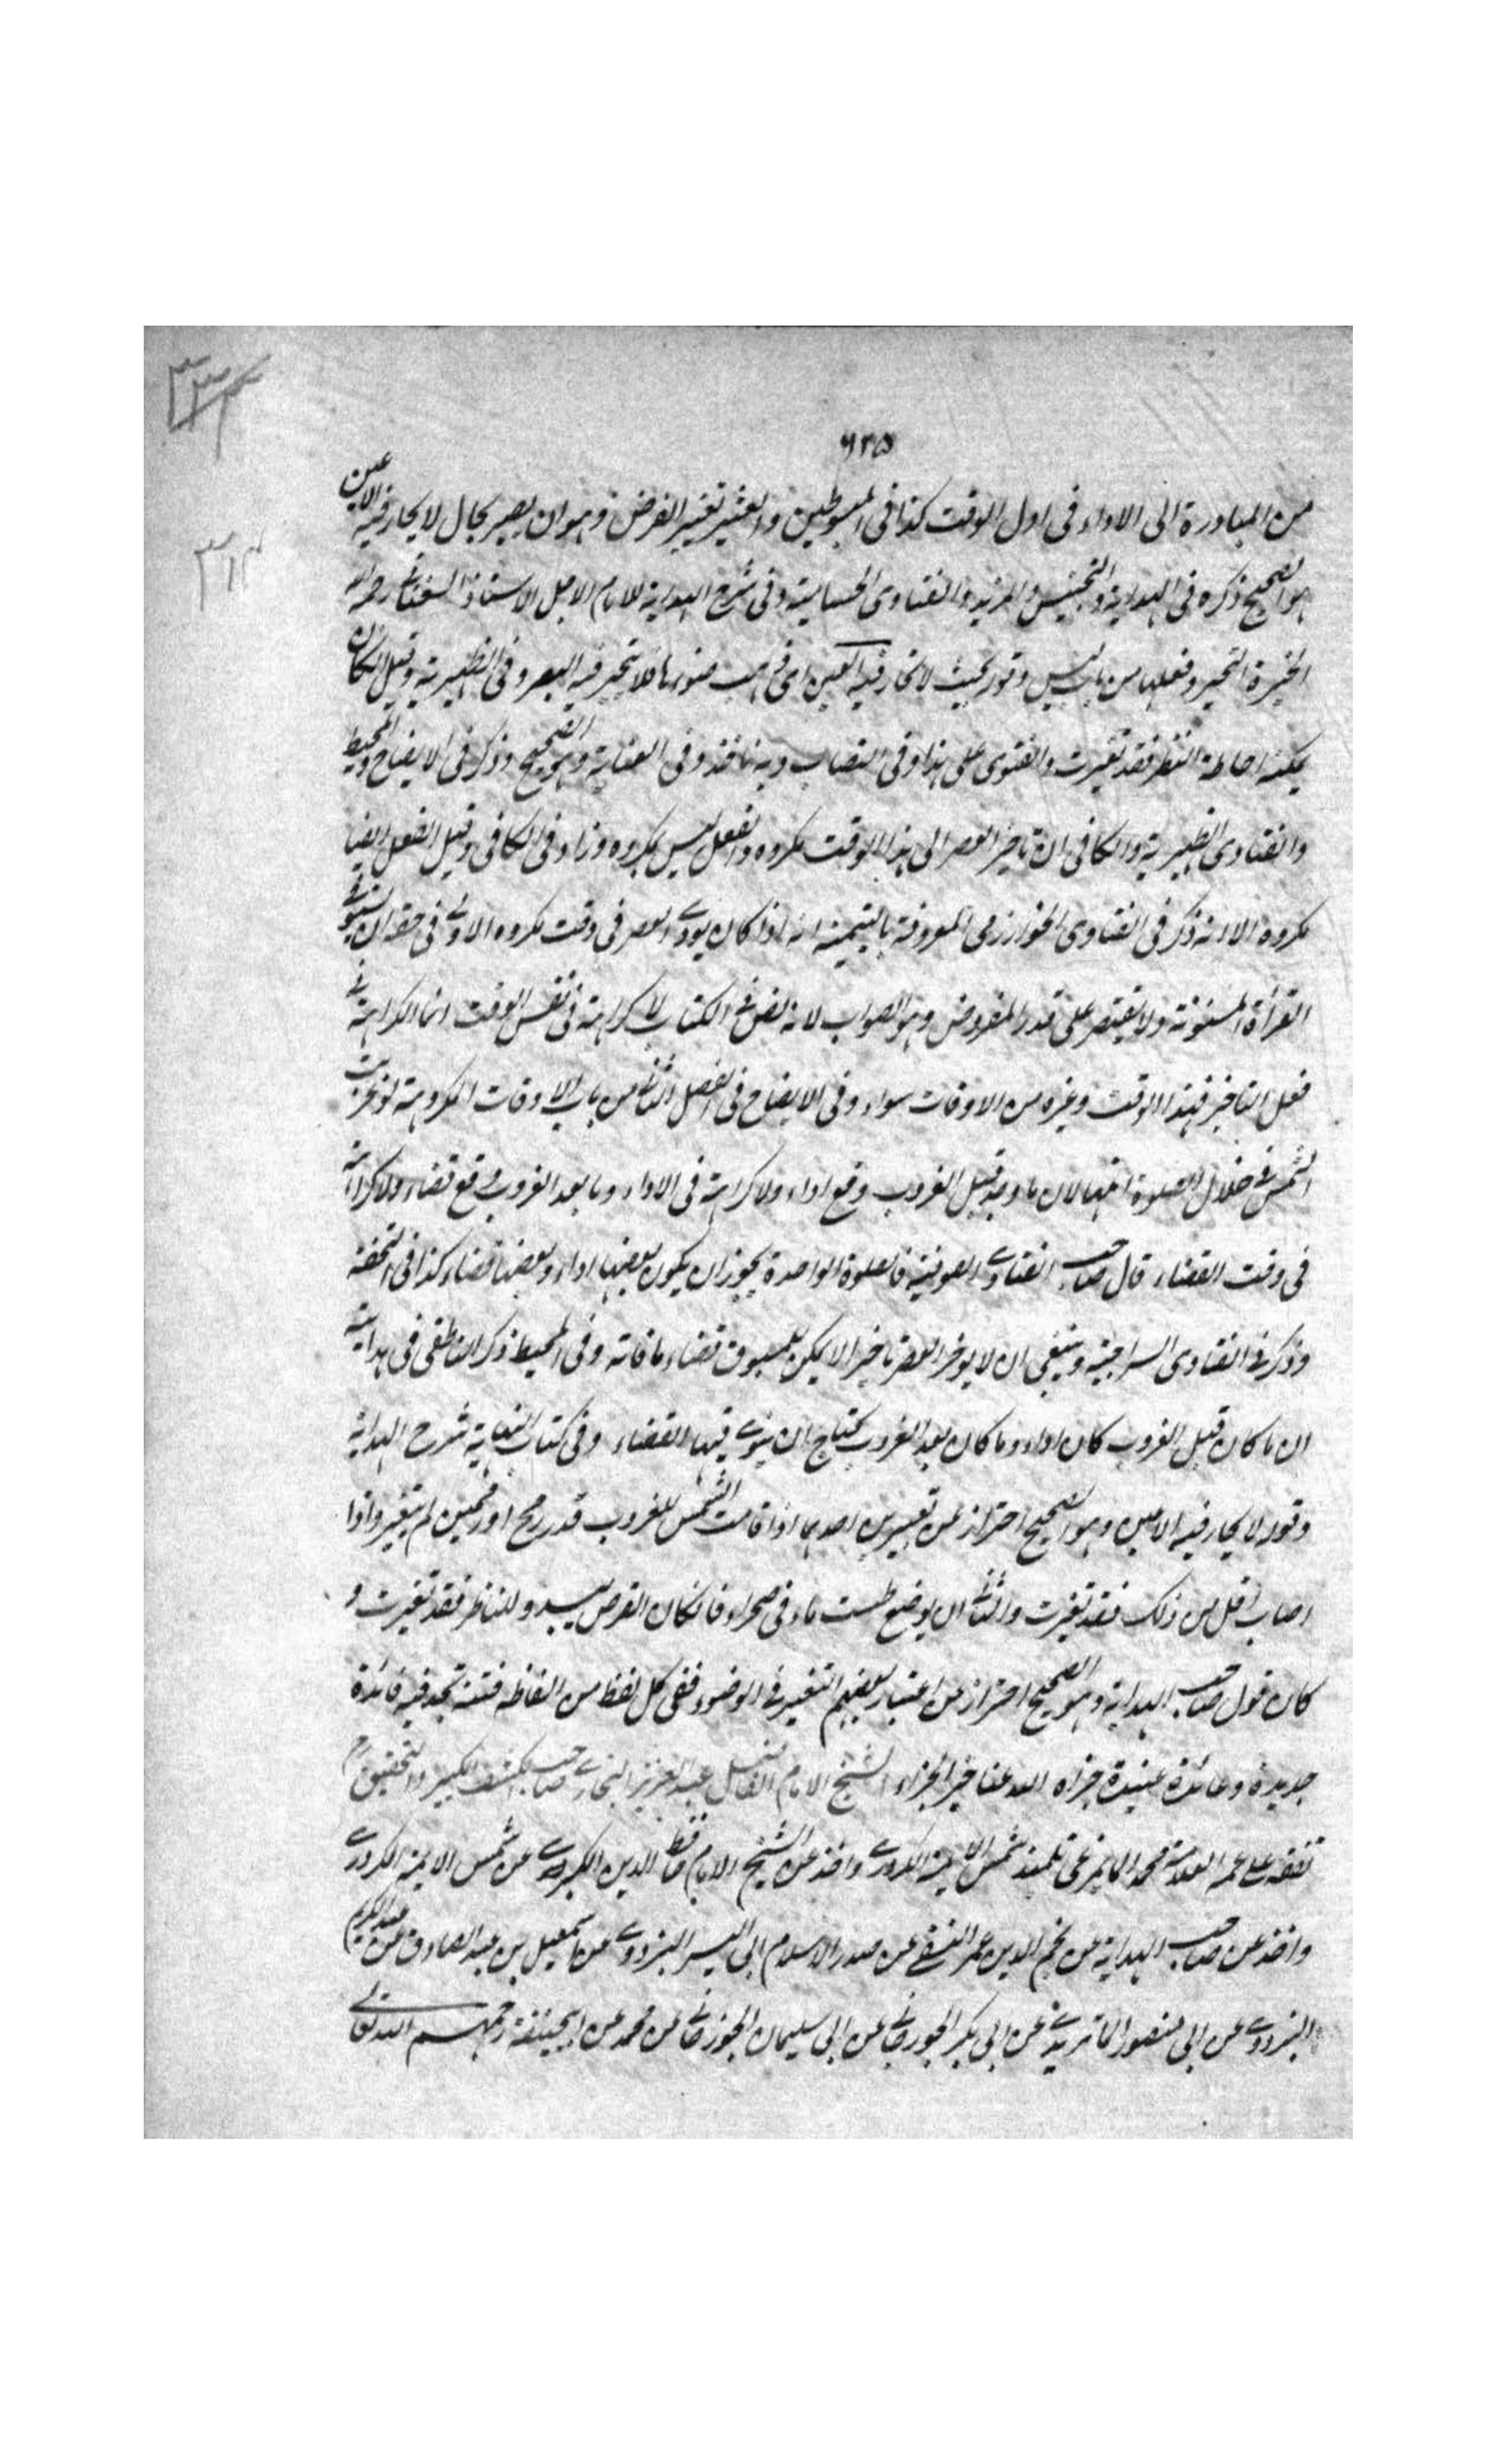 ٣٣٤
٦٣٥
٣١٤
من المبادرة الى الاداء فى اول الوقت كذا فى المبسوطين والمعتبر تغير القرص وهو ان يصير بحال لا يحار فيه الاعين
هو الصحيح ذكره فى الهداية والتجنيس والمزيد والفتاوى الحسامية وفى شرح الهداية للامام الاجل الاستاذ السغناقى رحمه الله
الحيرة التحير وفعلها من باب لبس وقوله بحيث لا تحار فيه العين اى ذهب ضوئها فلا تتحير فيه البصر وفى الظهيرية وقيل ان كان
يمكنه احاطة النظر فقد تغيرت والفتوى على هذا وفى النصاب وبه ناخذ وفى العناية وهو الصحيح وذكر فى الايضاح والمحيط
والفتاوى الظهيرية والكافى ان تاخير العصر الى هذا الوقت مكروه والفعل ليس بمكروه وزاد فى الكافى وقيل الفعل ايضا
مكروه الا انه ذكر فى الفتاوى الخوارزمى المعروفة باليتيمية انه اذا كان يودى العصر فى وقت مكروه الاولى فى حقه ان يستوفى
القرأة المسنونة ولا يقتصر على قدر المفروض وهو الصواب لانه نص فى الكتاب لا كراهة فى نفس الوقت انما الكراهة فى
فعل التاخير فهذا الوقت وغيره من الاوقات سواء وفى الايضاح فى الفصل الثانى من باب الاوقات المكروهة لو غربت
الشمس فى خلال الصلوة اتمها لان ما وجد قبل الغروب وقع اداء ولا كراهة فى الاداء وما بعد الغروب وقع قضاء ولا كراهة
فى وقت القضاء قال صاحب الفتاوى الصوفية فالصلوة الواحدة يجوز ان يكون بعضها اداء وبعضها قضاء كذا فى التحفة
وذكر فى الفتاوى السراجية وينبغى ان لا يوخر العصر تاخيرا لا يمكن للمسبوق قضاء ما فاته وفى المحيط ذكر الناطفى فى هدايته
ان ما كان قبل الغروب كان اداء وما كان بعد الغروب يحتاج ان ينوى فيها القضاء وفى كتاب النهاية شرح الهداية
وقوله لا يحار فيه الاعين وهو الصحيح احتراز عن تفسيرين احدهما اذا قامت الشمس للغروب قدر رمح او رمحين لم يتغير واذا
اصاب اقل من ذلك فقد تغيرت والثانى ان يوضع طست ماء فى صحراء فان كان القرص يبدو للناظر فقد تغيرت و
كان قول صاحب الهداية وهو الصحيح احتراز عن اعتبار بعضهم التغير فى الوضوء ففى كل لفظ من الفاظه فتنة تجد فيه فائدة
جديدة وعائدة عتيدة جزاه الله عنا خير الجزاء الشيخ الامام الفاضل عبد العزيز البخارى صاحب الكشف الكبير والتحقيق
تفقه على عمه العلامة محمد المايمرغى تلميذ شمس الايمة الكردرى واخذ عن الشيخ الامام حافظ الدين الكبير عن شمس الايمة الكردرى
واخذ عن صاحب الهداية عن نجم الدين عمر النسفى عن صدر الاسلام ابى اليسر البزدوى عن اسمعيل بن عبد الصادق عن عبد الكريم
البزدوى عن ابى منصور الماتريدى عن ابى بكر الجوزجانى عن ابى سليمان الجوزجانى عن محمد عن ابيحنيفة رحمهم الله تعالى